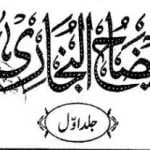 ضاح البخاری
جلد اوّل